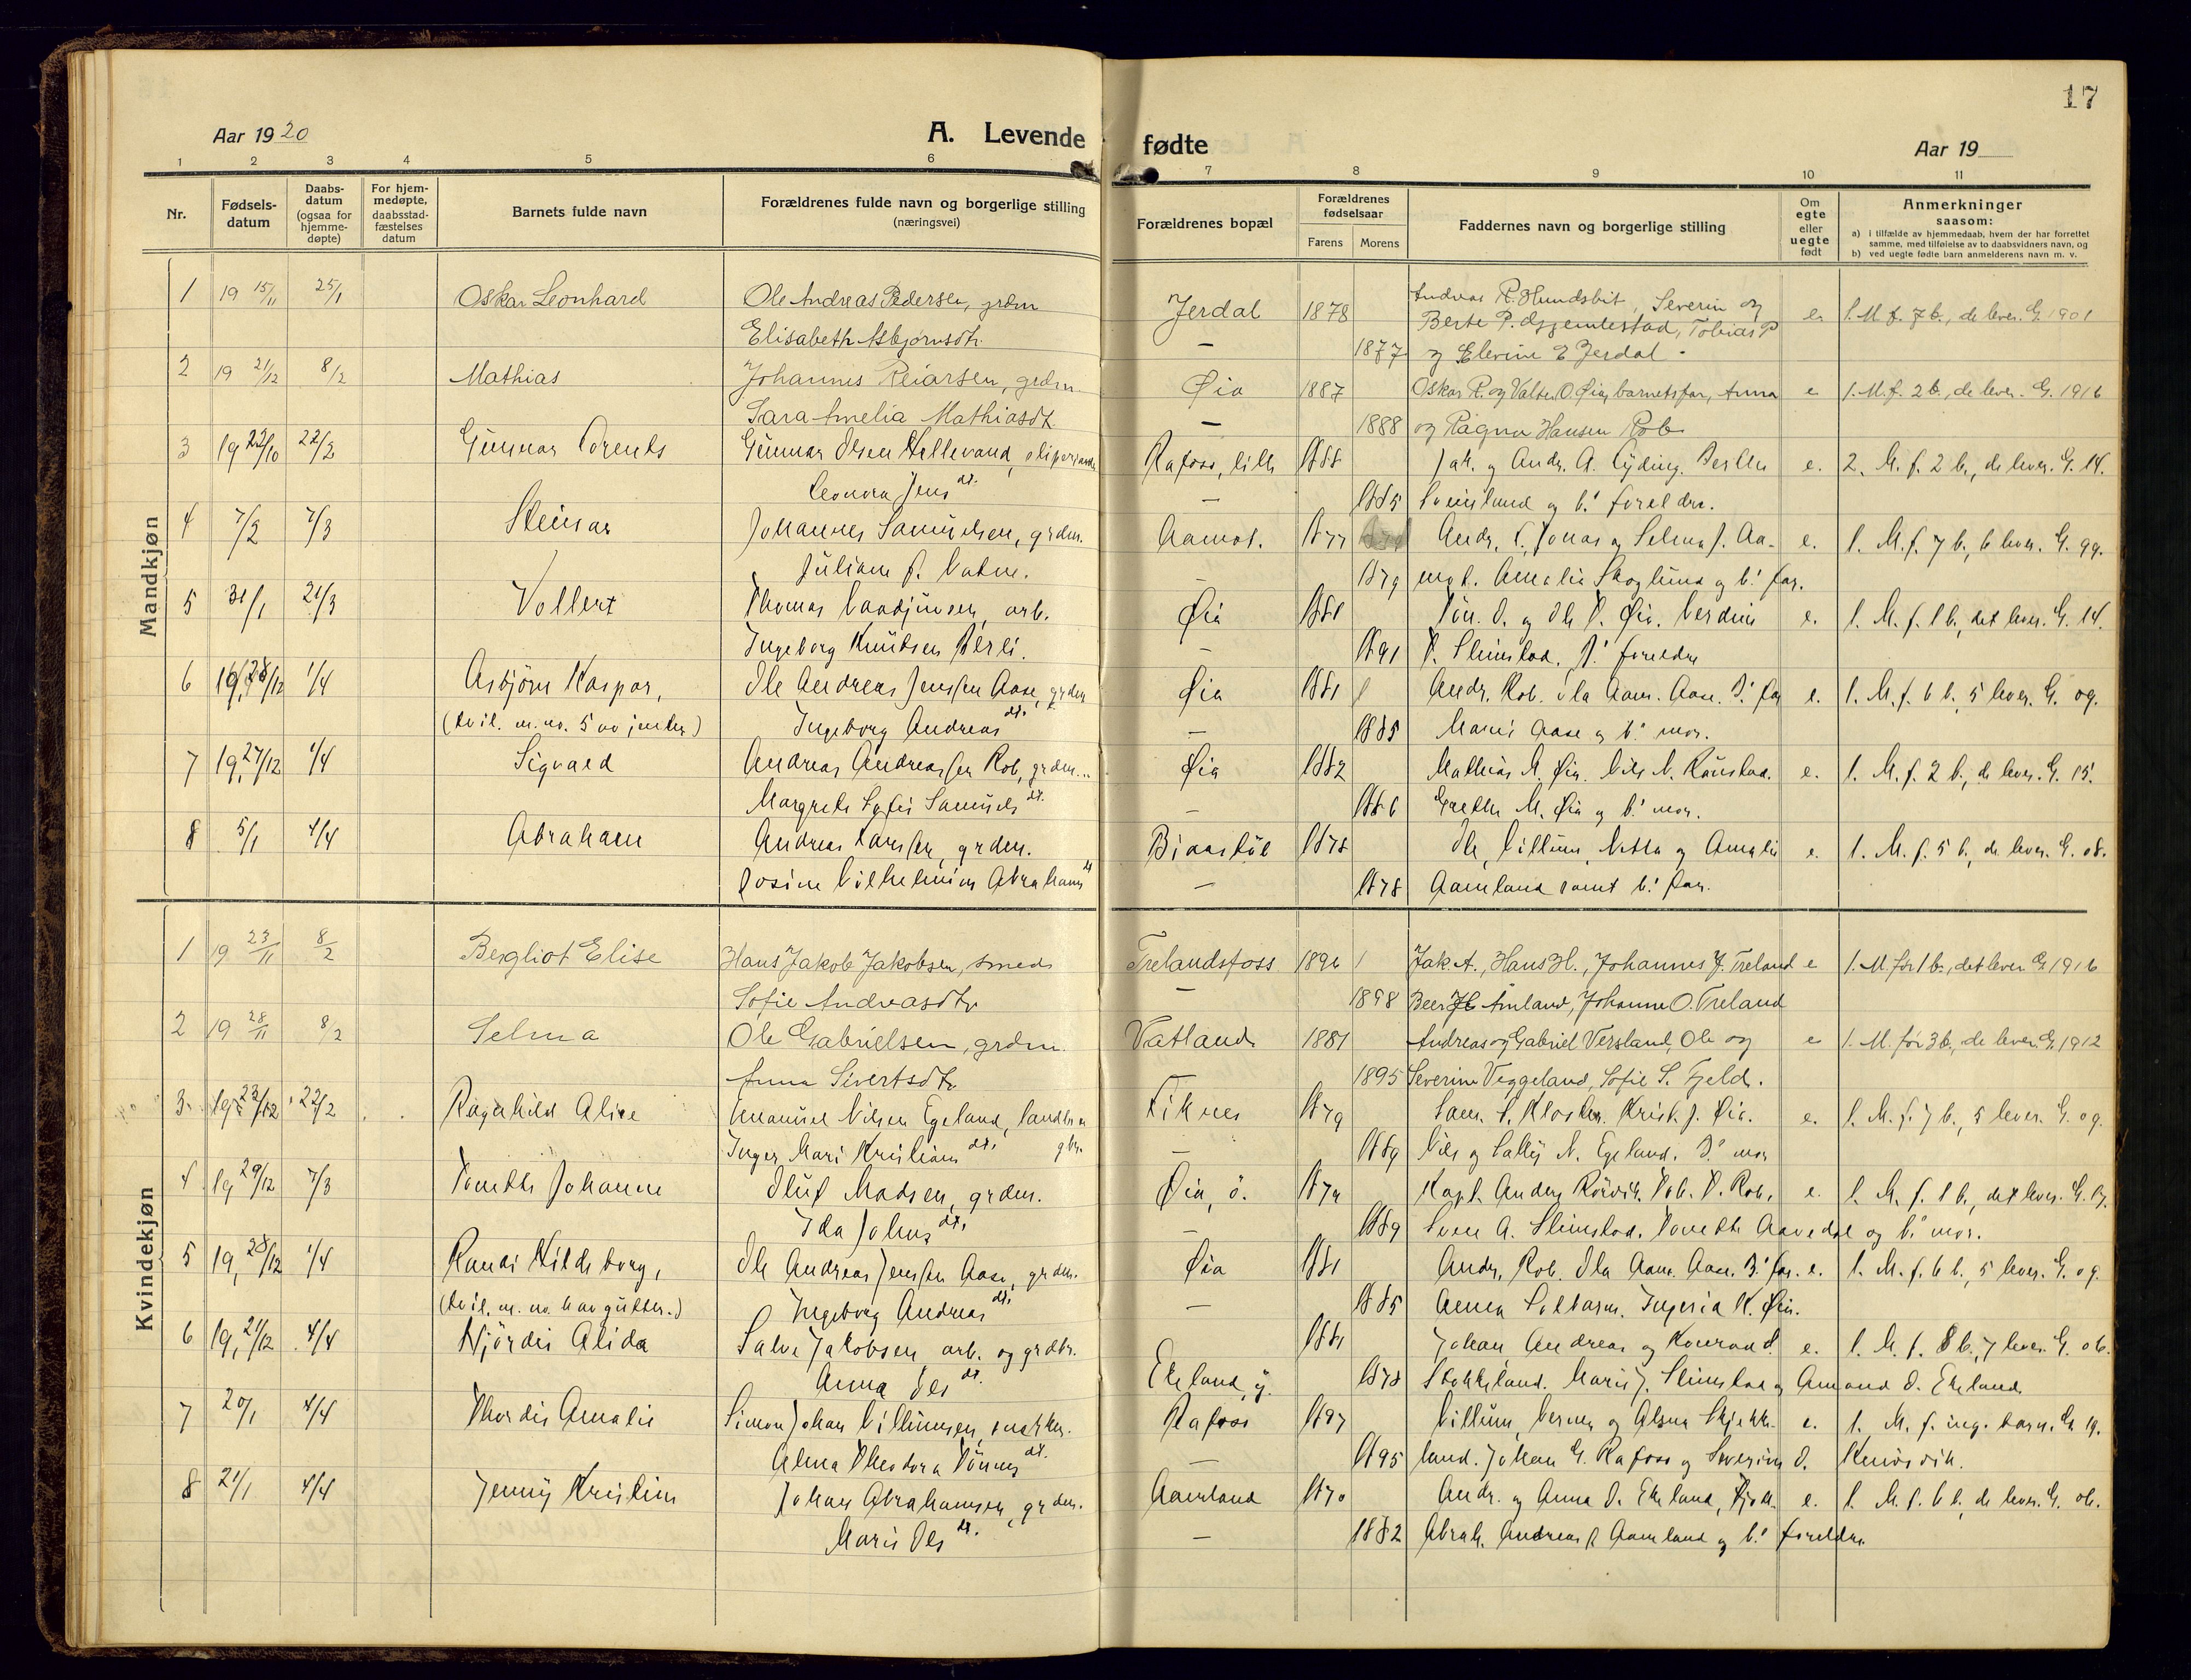 17
Aar 1920
A. Levende fødte
Aar 19
1 2 3 4 5 6 7 8 9 10 11
Nr.
Fødsels-
datum
Daabs-
datum
(ogsaa for
hjemme-
døpte)
For hjem-
medøpte,
daabsstad-
fæstelses
datum
Barnets fulde navn
Forældrenes fulde navn og borgerlige stilling
(næringsvei)
Forældrenes bopæl
Forældrenes
fødselsaar
Farens Morens
Faddernes navn og borgerlige stilling
Om
egte
eller
uegte
født
Anmerkninger
saasom:
a) i tilfælde av hjemmedaab, hvem der har forrettet
samme, med tilføielse av to daabsvidners navn, og
b) ved uegte fødte barn anmelderens navn m. v.
Mandkjøn
1 19 15/11 25/1 Oskar Leonhard Ole Andreas Pedersen, grdm Jerdal 1878 Andreas P. Severin og e 1. M. f. 7 b., de lever. G. 1901
Elisabeth Asbjørnsdtr. — 1877 Berte P. Tobias P
og Elevine E Jerdal.
2 19 21/12 8/2 Mathias Johannes Reiarsen, grdm. Øia 1887 Oskar R. og Valter O. Øia, barnets far, Anna e 1. M. f. 2 b., de lever. G. 1916
Sara Amelia Mathiasdt — 1888 og Ragna Hansen Rob
3 19 22/2 Gunnar Lorents Gunnar Olsen Rafoss, lille 1888 Jak. og Andr. A. e. 2. M. f. 2 b., de lever. G. 14.
Leonora Jens dt. — 1885 Sveinsland og b.' foreldre.
4 7/2 7/3 Steinar Johannes Samuelsen, grdm. Aamot. 1877 Andr. S., Jonas og Selma J. Aa- e. 1. M. f. 7 b., 6 lever. G. 99.
Juliane S. Vatne. — 1879 mot. Amalie Skoglund og b.' far.
5 31/1 21/3 Vollert Thomas arb. Øia 1881 Tøn. O. og Ole T. Øia. e. 1. M. f. 1 b., det lever. G. 14.
Ingeborg Knudsen — 1891 T. Slimstad. B.' foreldre
6 19, 28/12 1/4 Asbjørn Kaspar, Ole Andreas Jenssen Aase, grdm Øia 1881 Andr. Rob. Ola Aam. Aase. B.' far e. 1. M. f. 6 b., 5 lever. G. 09.
(tvil. m. no. 5 av jenter) Ingeborg Andreas dt. — 1885 Marie Aase og b.' mor.
7 19, 27/12 1/4 Sigvald Andreas Andreassen Rob, grdm. Øia 1882 Mathias M. Øia. Nils N. e. 1. M. f. 2 b., de lever. G. 15.
Margrete Sofie Samuels dt. — 1886 Grethe M. Øia og b.' mor.
8 5/1 4/4 Abraham Andreas Larssen, grdm. 1878 Ole, Villum, Netta og Amalie e. 1. M. f. 5 b., de lever. G. 08.
Josine Vilhelmine Abrahams dt — 1878 Aamland samt b.' far.
Kvindekjøn
1 19 23/11 8/2 Bergliot Elise Hans Jakob Jakobsen, smed Trelandsfoss 1896 Jak. A., Hans H., Johannes J. Treland e 1. M. før 1 b., det lever G. 1916
Sofie Andreasdtr — 1898 Amland, Johanne O. Treland
2 19 28/11 8/2 Selma Ole Gabrielsen, grdm. Vatland 1881 Andreas og Gabriel Versland, Ole og e 1. M. før 3 b., de lever. G. 1912
Anna Sivertsdtr 1895 Severine Veggeland, Sofie S. Fjeld.
3 19 22/12 22/2 Ragnhild Alice Emanuel Nilsen Egeland, landbr. Liknes 1879 Sam. S. Kloster. Krist. J. Øia. e. 1. M. f. 7 b., 5 lever. G. 09.
Inger Mari Kristians dt. — 1889 Nils og Sally N. Egeland. B.' mor
4 19 29/12 7/3 Tomette Johanne Oluf Madsen, grdm. Øia, ö. Kapt. Anders Rørvik. Tob. T. Rob, e. 1. M. f. 1 b., det lever. G.
Ida Johns dt. — 1889 Sven A. Slimstad. Tomette Aavedal og b.' mor.
5 19, 28/12 1/4 Randi Hildeborg, Ole Andreas Jenssen Aase, grdm. Øia 1881 Andr. Rob. Ola Aam. Aase. B.' far. e. 1. M. f. 6 b., 5 lever. G. 09.
(tvil. m. no. 6 av gutter.) Ingeborg Andreas dt. — 1885 Anna Solbarm. Ingeria K. Øia.
6 19, 21/12 4/4 Hjördis Alida Salve Jakobsen, arb. og grdbr. 1881 Johan Andreas og Konrad e. 1. M. f. 8 b., 7 lever. G. 06.
Anna Ols dt. Ekeland, y. 1878 Stokkeland. Marie J. Slimstad og Amanda O. Ekeland.
7 20/1 4/4 Thordis Amalie Simon Johan Villumsen, snekker. Rafoss 1897 Villum, Verner og Alma e. 1. M. f. ing. barn. G. 19.
Alma Theodora Tönnes dt. — 1895 land. Johan G. Rafoss og Severine O.
8 21/1 4/4 Jenny Kristine Johan Abrahamsen, grdm. Aamland 1870 Andr. og Anna O. Ekeland, e. 1. M. f. 6 b., de lever. G. 06.
Marie Ols dt. — 1882 Abrah. Andreas Aamland og b.' foreldre.